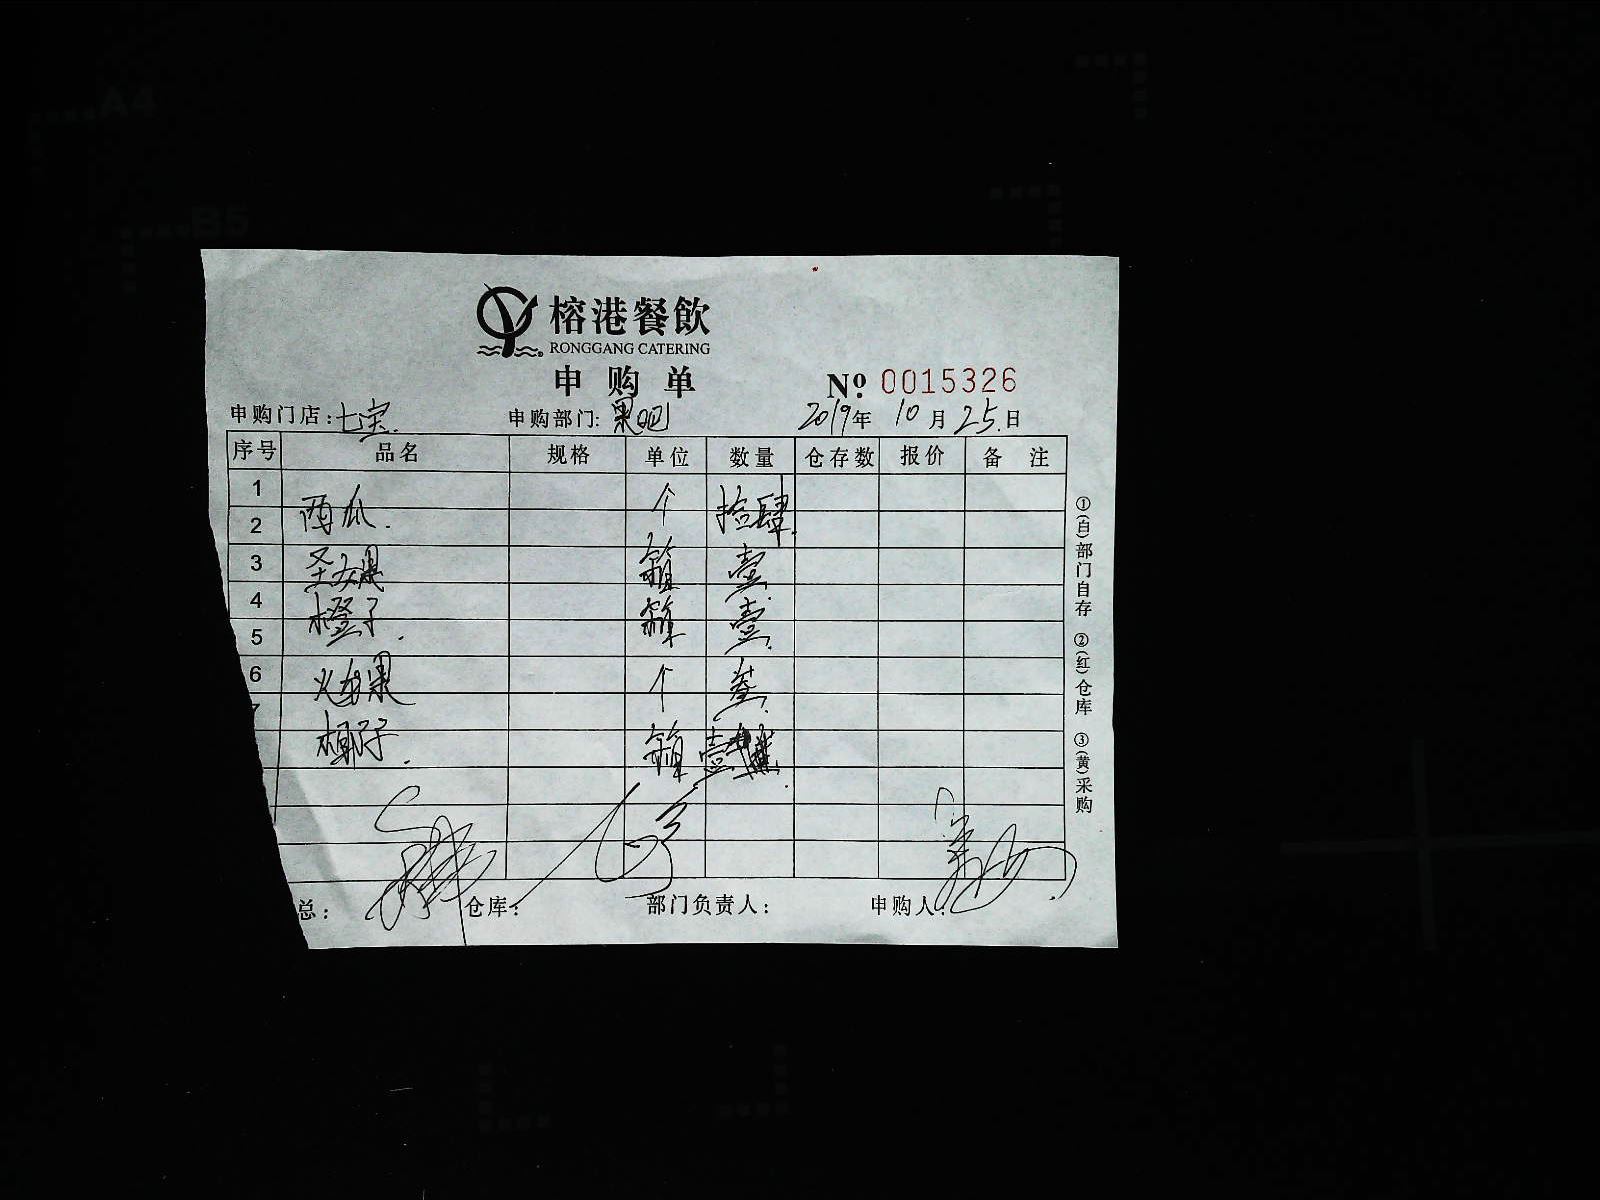 A4
B5
榕港餐飲
RONGGANG CATERING
申购单
Nº 0015326
申购门店:七宝 申购部门:果吧 2019年10月25日
序号 品名 规格 单位 数量 仓存数 报价 备注
1
西瓜 个 拾肆
2
3 圣女果 箱 壹
4 橙子 箱 壹
5
6 火龙果 个 叁
7
椰子 箱 壹
总: 仓库: 部门负责人: 申购人:
①(白)部门自存 ②(红)仓库 ③(黄)采购